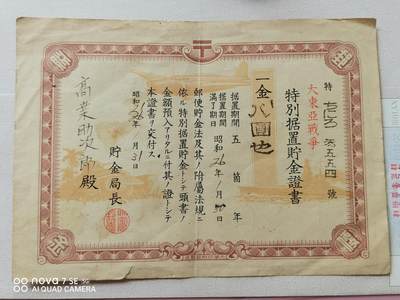 特 五五四 號
大東亞戰爭
特別据置貯金證書
一金八圓也
据置期間 五箇年
据置期間
滿了期日 昭和26年1月 日
郵便貯金法及其ノ附屬法規ニ
依ル特別据置貯金トシテ頭書ノ
金額預入アリタルニ付其ノ證トシテ
本證書ヲ交付ス
昭和 年 月31日
貯金局長
助次郎殿
nova 7 SE 5G
AI QUAD CAMERA